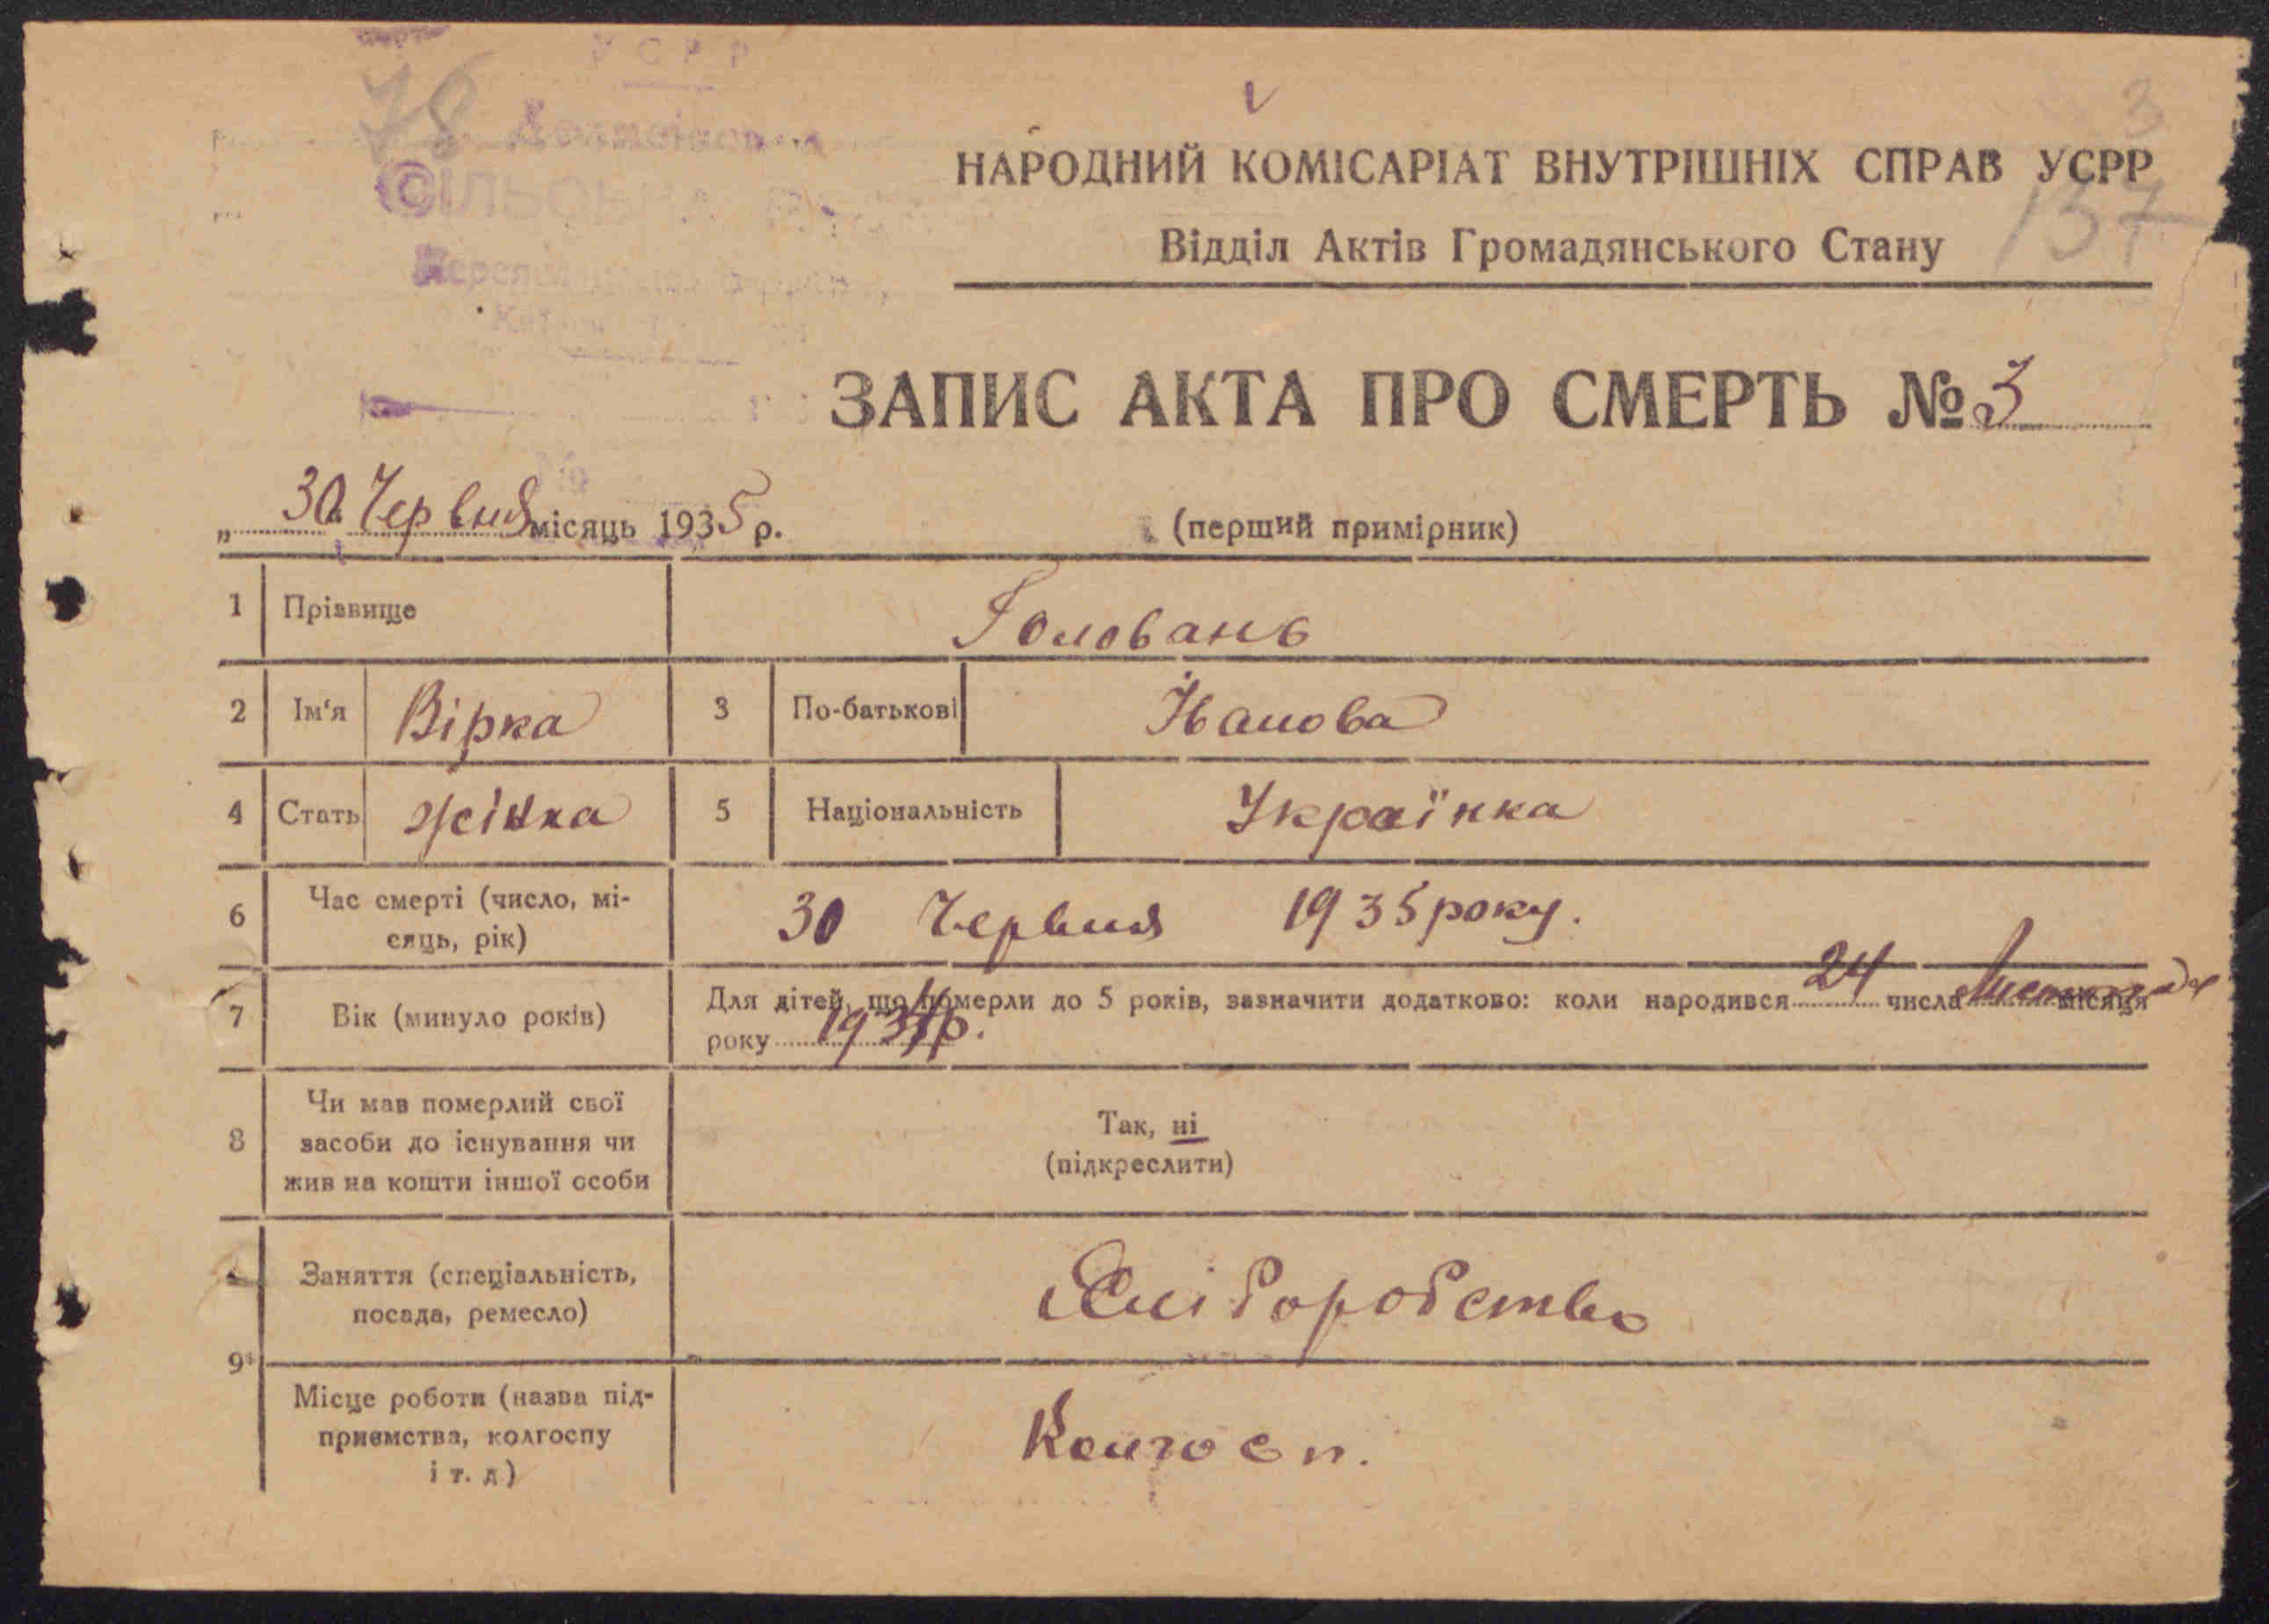 УСРР
78
СІЛЬОВНА
3
НАРОДНИЙ КОМІСАРІАТ ВНУТРІШНІХ СПРАВ УСРР
137
Відділ Актів Громадянського Стану
ЗАПИС АКТА ПРО СМЕРТЬ № 3
„30" Червня місяць 1935 р.
(перший примірник)
1 Прізвище Головань
2 Ім'я Вірка 3 По-батькові Іванова
4 Стать жінка 5 Національність Українка
6 Час смерті (число, мі-
сяць, рік) 30 Червня 1935 року.
7 Вік (минуло років) Для дітей, що померли до 5 років, зазначити додатково: коли народився 24 числа Листопада місяця
року 1934 р.
8 Чи мав померлий свої
засоби до існування чи
жив на кошти іншої особи
Так, ні
(підкреслити)
9 Заняття (спеціальність,
посада, ремесло) Хліборобство
Місце роботи (назва під-
приємства, колгоспу
і т. д) Колгосп.